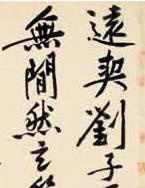 遠契劉子
無間然